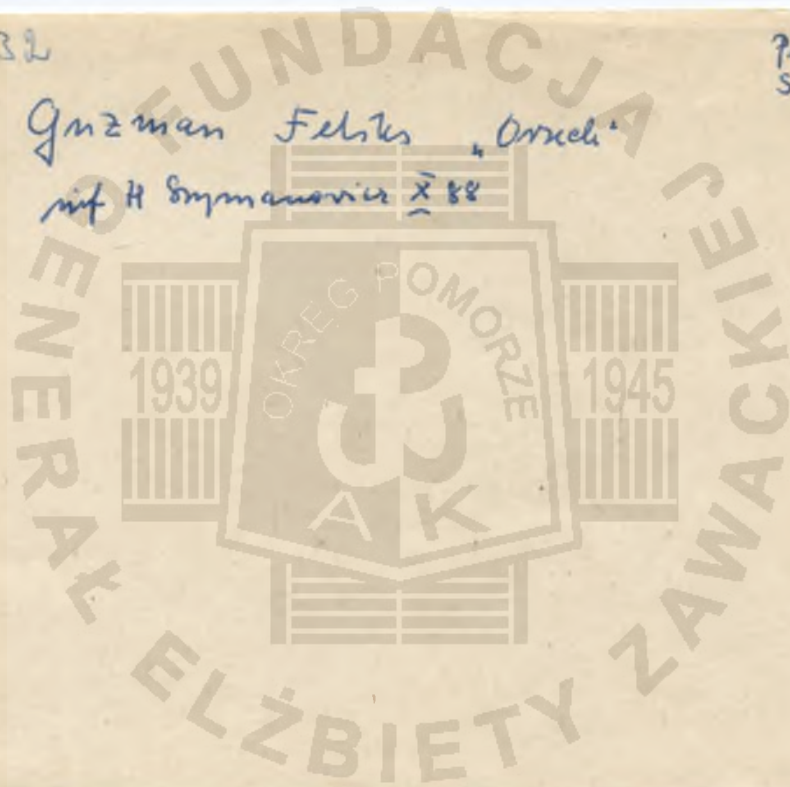 32
P
S
Guzman Feliks „Orzech"
inf H Szymanowicz X 88
FUNDACJA
GENERAŁ ELŻBIETY ZAWACKIEJ
OKRĘG POMORZE
1939
1945
A K